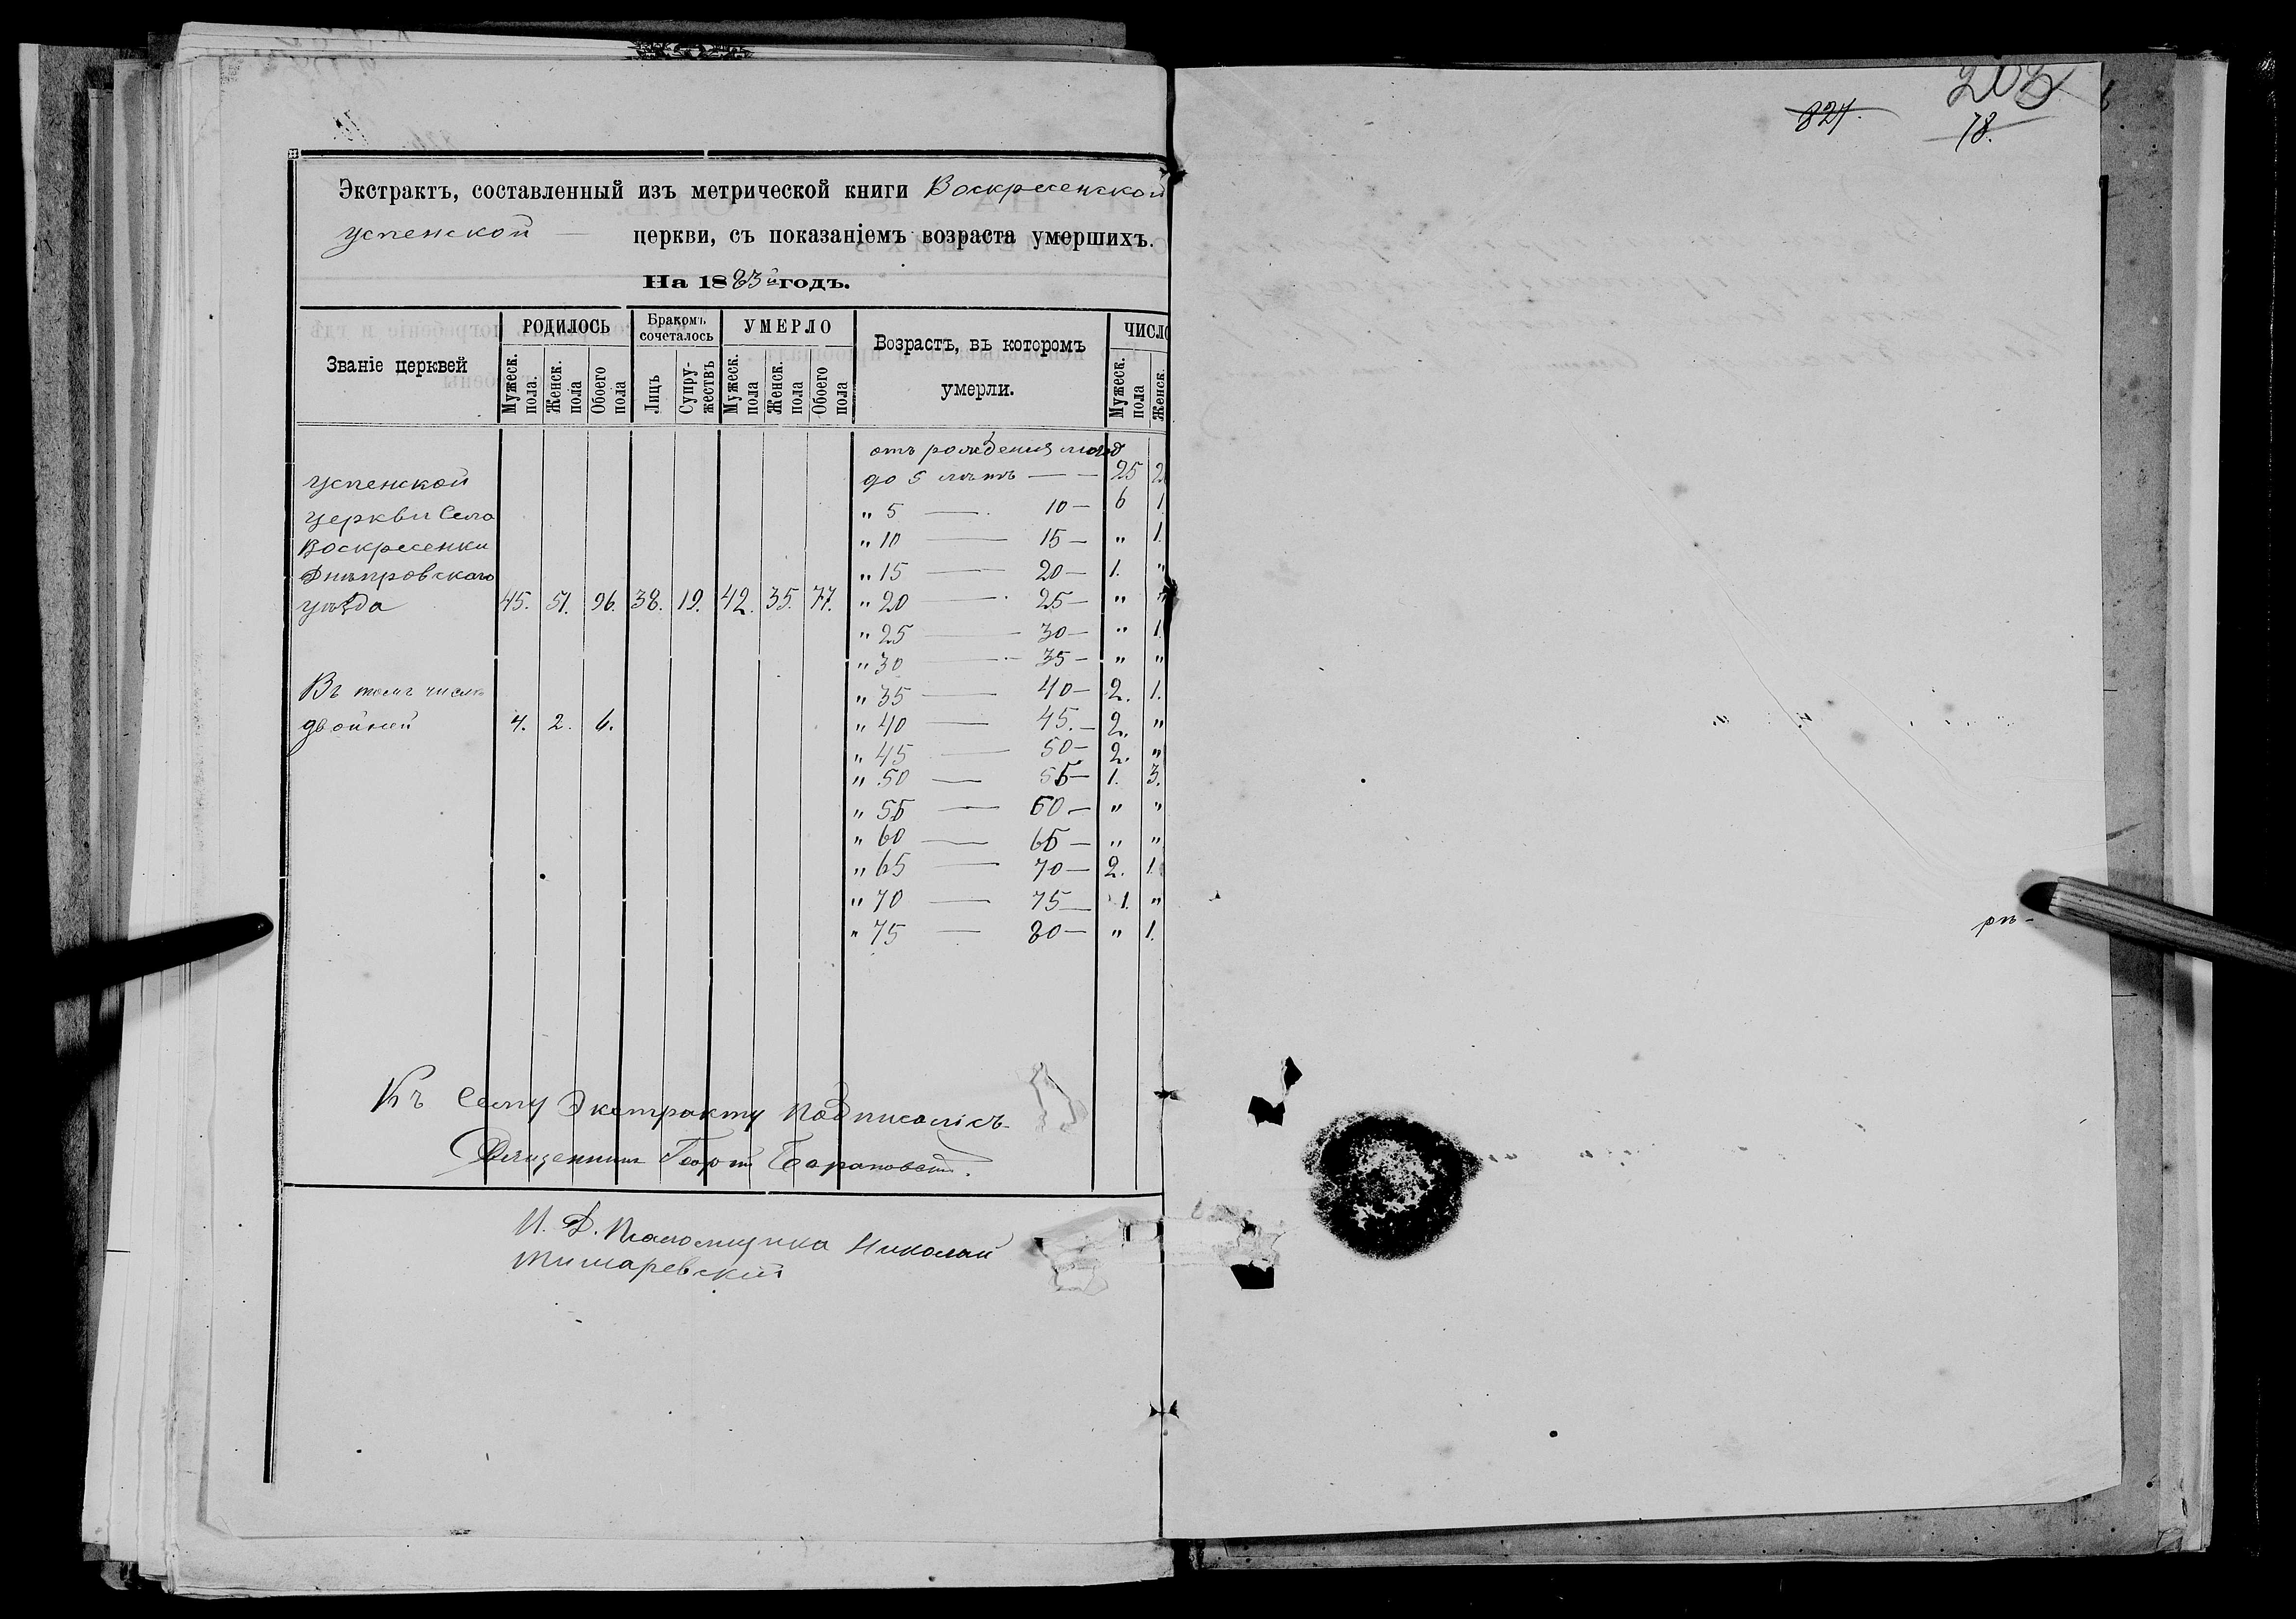 Экстрактъ, составленный изъ метрической книги Воскресенской
Успенской — церкви, съ показаніемъ возраста умершихъ.
На 1883й годъ.
Званіе церквей
РОДИЛОСЬ
Мужеск. пола.
Женск. пола
Обоего пола
Бракомъ сочеталось
Лицъ
Супружествъ
УМЕРЛО
Мужеск. пола
Женск. пола
Обоего пола
Возрастъ, въ которомъ
умерли.
ЧИСЛО
Мужеск. пола
Женск.
отъ рожденія
Успенской до 5 лѣтъ — 25 2
Церкви Села " 5 — 10 — 6 1
Воскресенки " 10 — 15 — " 1.
Днѣпровскаго " 15 — 20 — 1. "
уѣзда 45. 51. 96. 38. 19. 42. 35. 77. " 20 — 25 — " "
" 25 — 30 — " 1.
" 30 — 35 — " "
Въ томъ числѣ " 35 — 40 — 2. 1.
двойней 4. 2. 6. " 40 — 45. — 2. "
" 45 — 50 — 2. "
" 50 — 55 — 1. 3.
" 55 — 60 — " "
" 60 — 65 — " "
" 65 — 70 — 2. 1.
" 70 — 75 — 1. "
" 75 — 80 — " 1.
Къ Сему Экстракту Подписалісь
Священникъ Георгій Барановскій.
И. Д. Псаломщика Николай
824.
203
78.
рѣ-